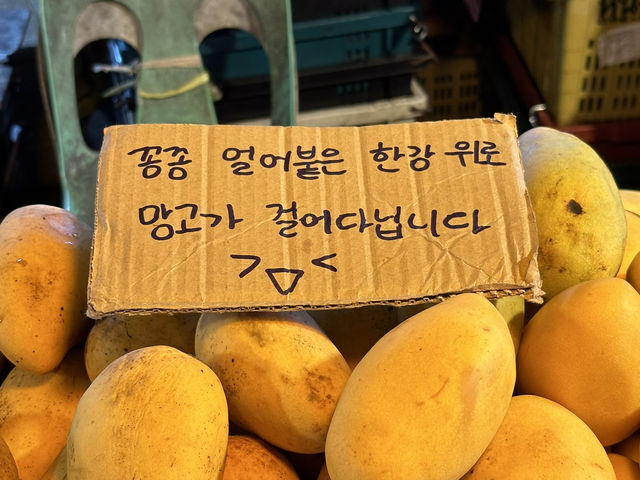 꽁꽁 얼어붙은 한강 위로
망고가 걸어다닙니다
>▽<